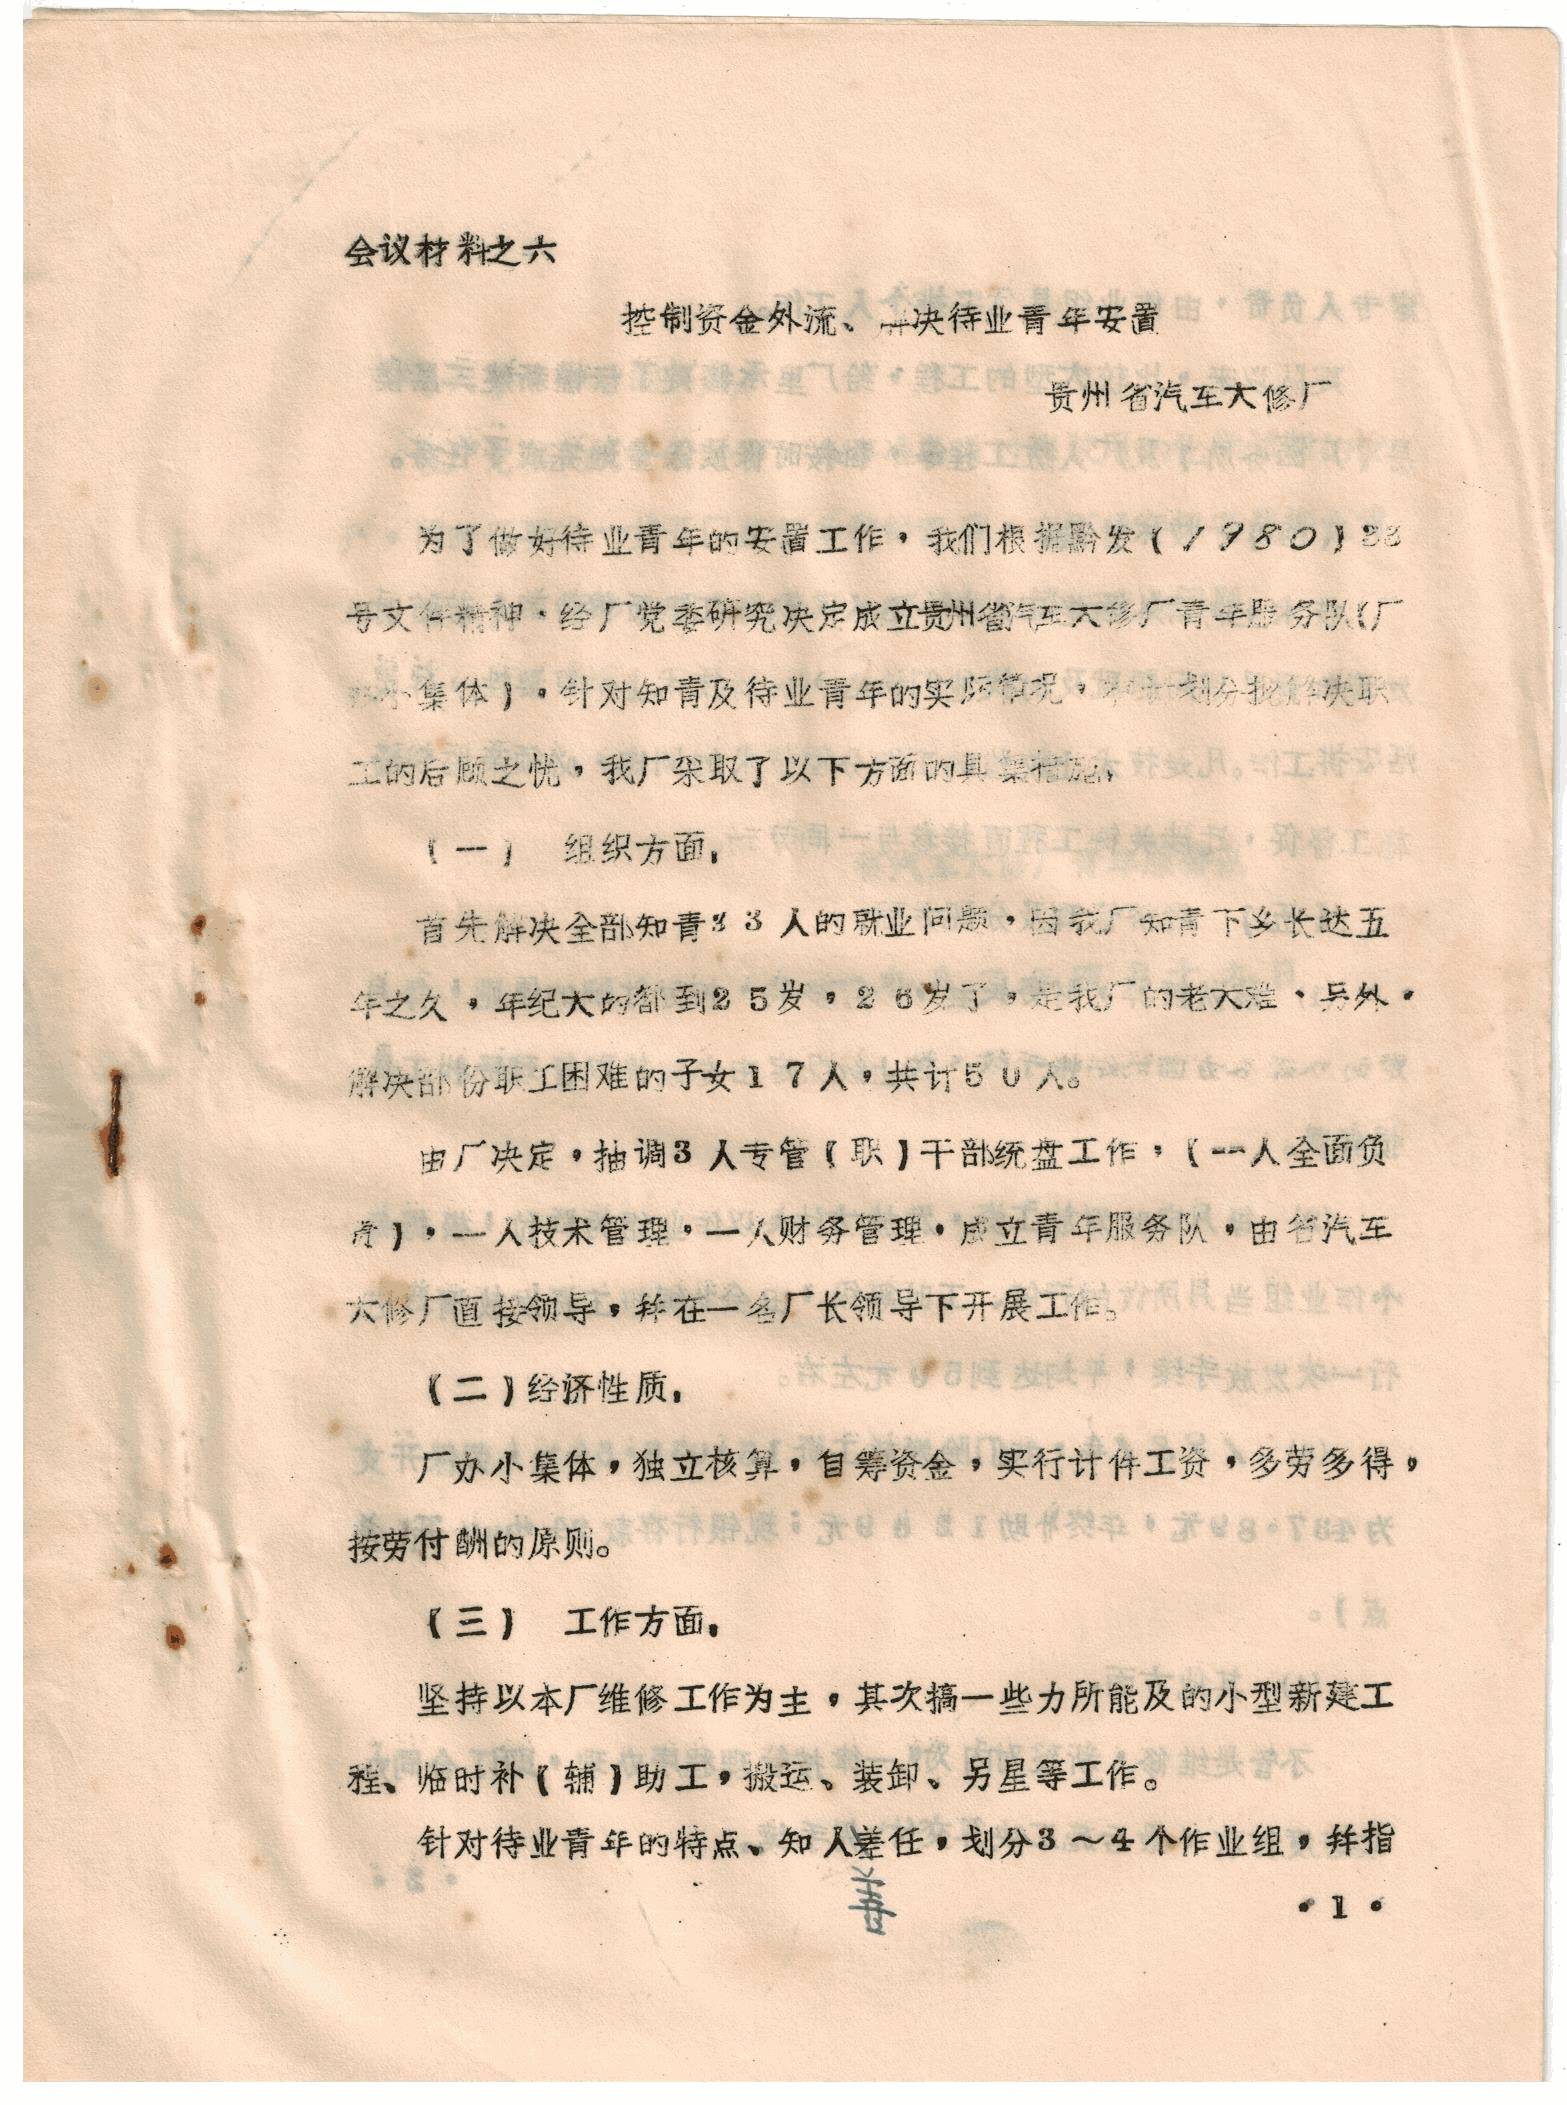 会议材料之六
控制资金外流、解决待业青年安置
贵州省汽车大修厂
为了做好待业青年的安置工作，我们根据黔发(1980)33
号文件精神，经厂党委研究决定成立贵州省汽车大修厂青年服务队(厂
小集体)，针对知青及待业青年的实际情况，有计划分批解决职
工的后顾之忧，我厂采取了以下方面的具体措施，
(一) 组织方面，
首先解决全部知青33人的就业问题，因我厂知青下乡长达五
年之久，年纪大的都到25岁，26岁了，是我厂的老大难，另外，
解决部份职工困难的子女17人，共计50人。
由厂决定，抽调3人专管(职)干部统盘工作，(一人全面负
责)，一人技术管理，一人财务管理，成立青年服务队，由省汽车
大修厂直接领导，并在一名厂长领导下开展工作。
(二)经济性质，
厂办小集体，独立核算，自筹资金，实行计件工资，多劳多得，
按劳付酬的原则。
(三) 工作方面，
坚持以本厂维修工作为主，其次搞一些力所能及的小型新建工
程、临时补(辅)助工，搬运、装卸、另星等工作。
针对待业青年的特点、知人差任，划分3～4个作业组，并指
善
·1·